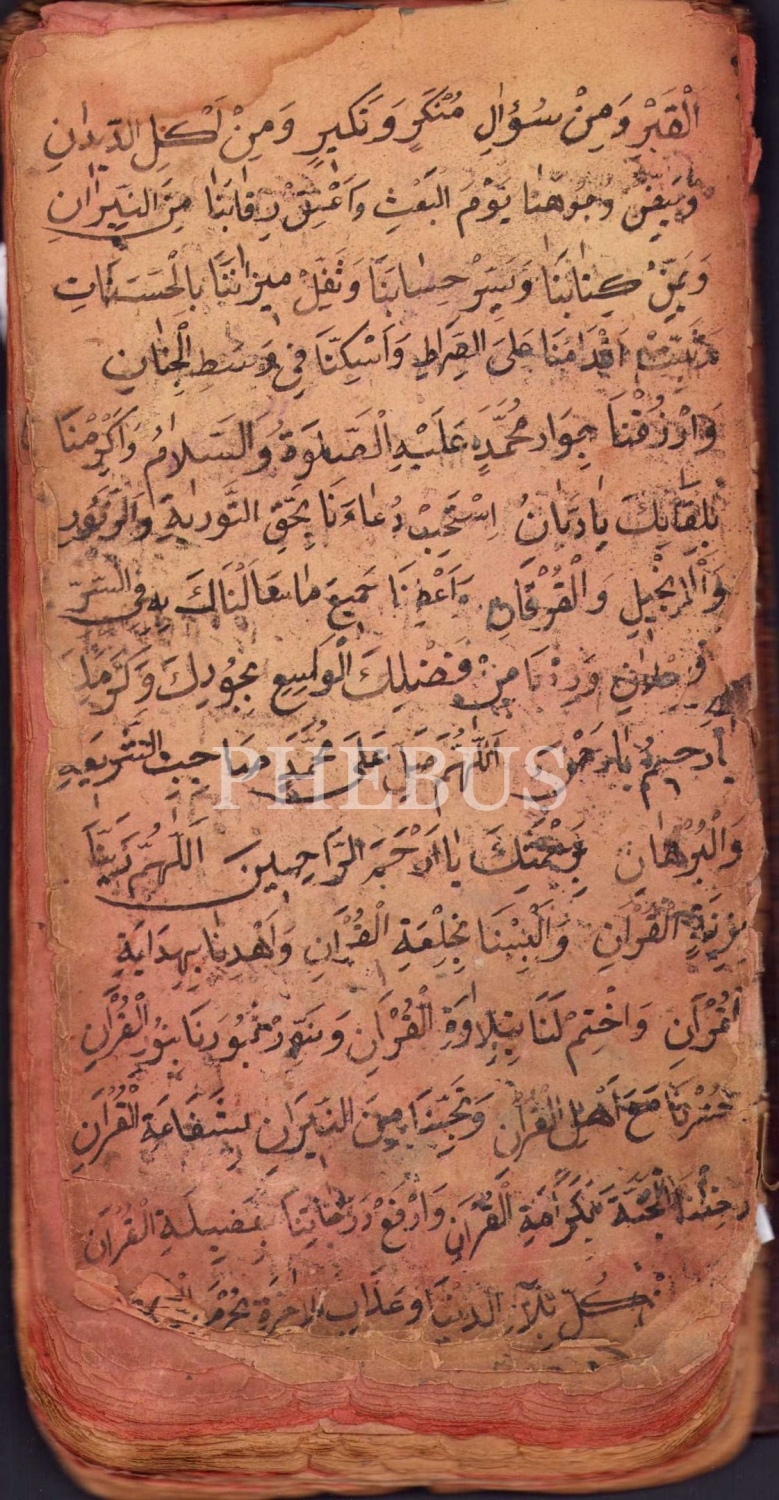 الْقَبْرِ وَمِنْ سُؤَالِ مُنْكَرٍ وَنَكِيرٍ وَمِنْ اَكْلِ الدّيدَانِ
وَبَيِّضْ وُجُوهَنَا يَوْمَ الْبَعْثِ وَاَعْتِقْ رِقَابَنَا مِنَ النِّيرَانِ
وَيَمِّنْ كِتَابَنَا وَيَسِّرْ حِسَابَنَا وَثَقِّلْ مِيزَانَنَا بِالْحَسَنَاتِ
وَثَبِّتْ اَقْدَامَنَا عَلَى الصِّرَاطِ وَاَسْكِنَّا فِي وَسَطِ الْجِنَانِ
وَارْزُقْنَا جِوَارَ مُحَمَّدٍ عَلَيْهِ الْصَّلٰوةُ وَالسَّلَامُ وَاَكْرِمْنَا
بِلِقَائِكَ يَا دَيَّانُ اِسْتَجِبْ دُعَاءَنَا بِحَقِّ التَّوْرَيةِ وَالزَّبُورِ
وَالْاِنْجِيلِ وَالْفُرْقَانِ وَاَعْطِنَا جَمِيعَ مَا سَاَلْنَاكَ بِهِ فِي السِّرِّ
وَزِدْنَا مِنْ فَضْلِكَ الْوَاسِعِ بِجُودِكَ وَكَرَمِكَ
يَا رَحِيمُ يَا رَحْمٰنُ اَللّٰهُمَّ صَلِّ عَلَى مُحَمَّدٍ صَاحِبِ الشَّرِيعَةِ
PHEBUS
وَالْبُرْهَانِ بِرَحْمَتِكَ يَا اَرْحَمَ الرَّاحِمِينَ اَللّٰهُمَّ زَيِّنَّا
بِزِينَةِ الْقُرْاٰنِ وَاَلْبِسْنَا بِخِلْعَةِ الْقُرْاٰنِ وَاهْدِنَا بِهِدَايَةِ
الْقُرْاٰنِ وَاخْتِمْ لَنَا بِتِلَاوَةِ الْقُرْاٰنِ وَنَوِّرْ قُبُورَنَا بِنُورِ الْقُرْاٰنِ
وَاحْشُرْنَا مَعَ اَهْلِ الْقُرْاٰنِ وَنَجِّنَا مِنَ النِّيرَانِ بِشَفَاعَةِ الْقُرْاٰنِ
وَاَدْخِلْنَا الْجَنَّةَ بِكَرَامَةِ الْقُرْاٰنِ وَارْفَعْ دَرَجَاتِنَا بِفَضِيلَةِ الْقُرْاٰنِ
كُلِّ بَلَاءِ الدُّنْيَا وَعَذَابِ الْاٰخِرَةِ بِحُرْمَةِ